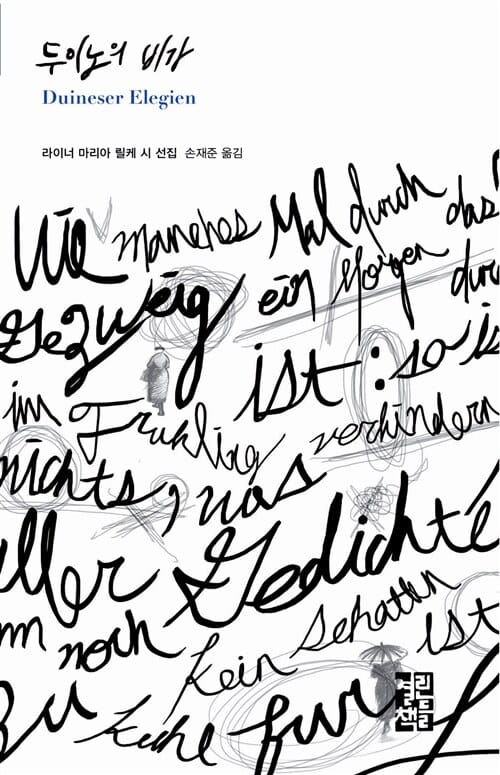 두이노의 비가
Duineser Elegien
라이너 마리아 릴케 시 선집 손재준 옮김
Wie manches Mal durch das
Gezweig ein Morgen durc
ist: so is
im Fruhling verhindern
nichts, was
aller Gedichte
nn noch kein Schatten ist
zu kuhl fur
열린책들